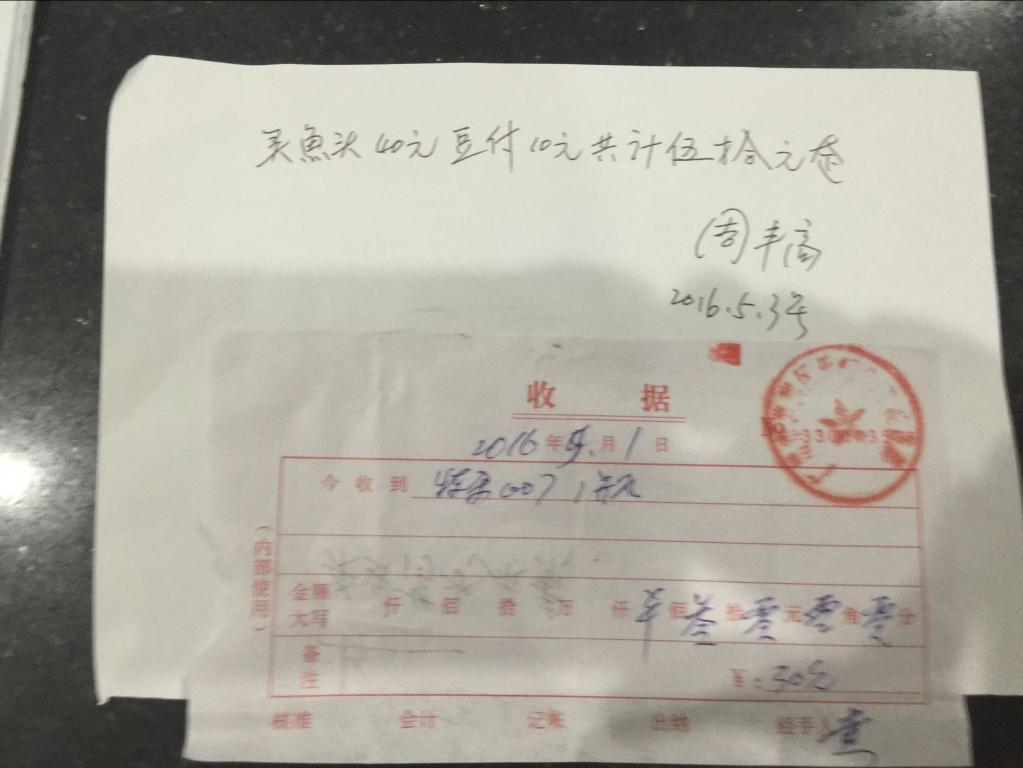 买魚头40元豆付10元共计伍拾元
周丰高
2016.5.3号
收 据
2016年5月1日
今收到 007 1瓶
(内部使用)
金额大写 仟 佰 拾 万 仟 半 佰 叁 拾 零 元 零 角 零 分
备注 ¥:30元
核准 会计 记账 出纳 经手人